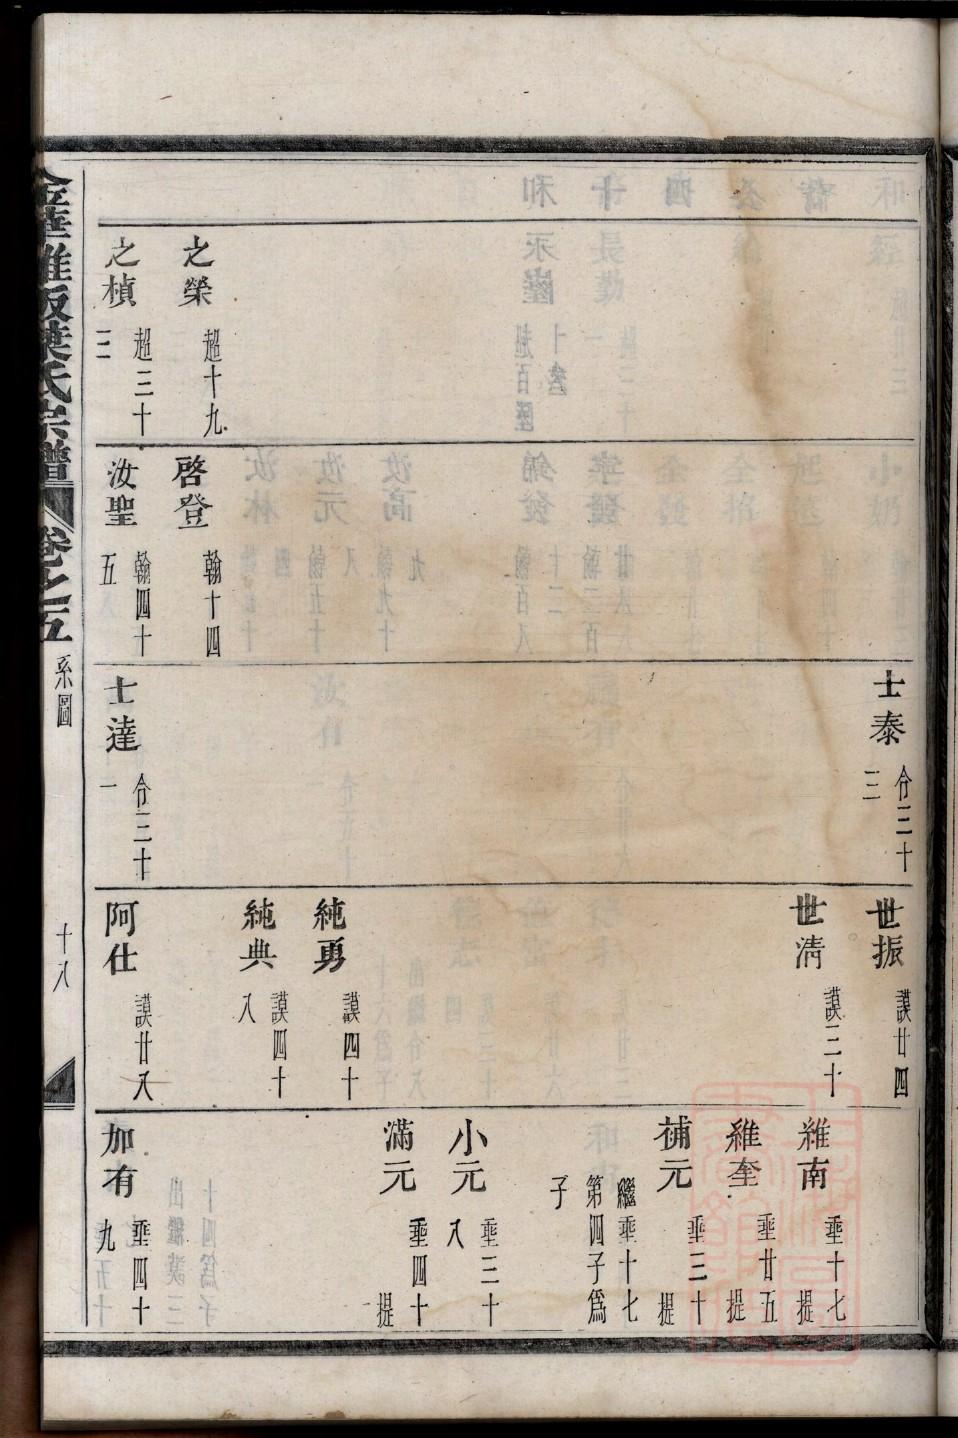 之榮 超十九
之楨 超三十三
啓登 翰十四
汝聖 翰四十五
士泰 仝三十三
士達 仝三十一
世振 謨廿四
世清 謨三十
純勇 謨四十
純典 謨四十八
阿仕 謨廿八
維南 垂十七 提
維奎 垂廿五 提
補元 垂三十 提
繼垂十七
第四子爲
子
小元 垂三十八
滿元 垂四十 提
加有 垂四十九
葉氏宗譜 卷之五 系圖 十八